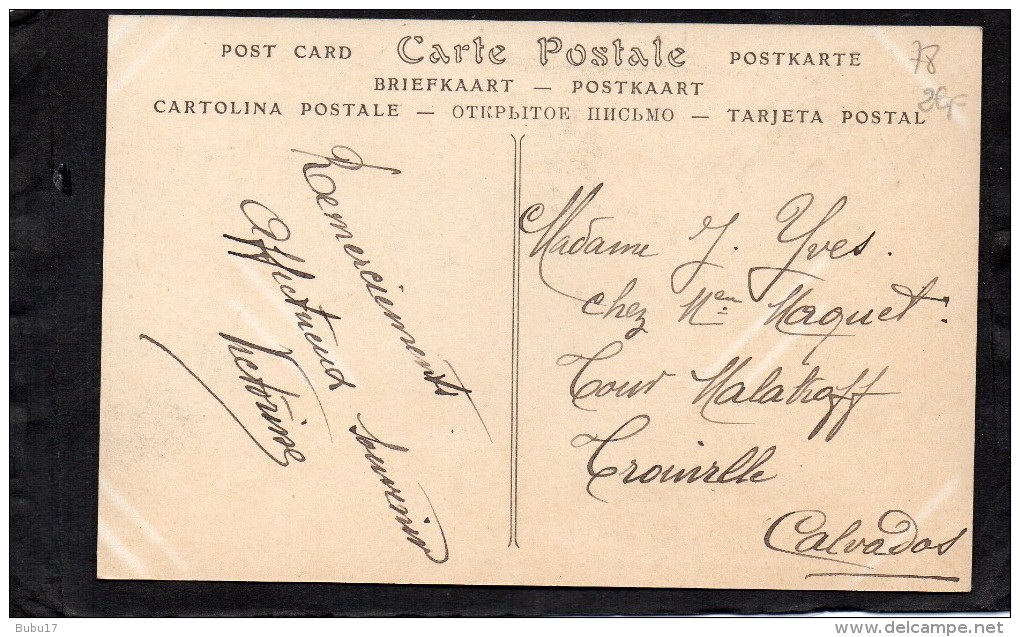 POST CARD Carte Postale POSTKARTE
BRIEFKAART — POSTKAART
CARTOLINA POSTALE — ОТКРЫТОЕ ПИСЬМО — TARJETA POSTAL
78
Remerciements
Affectueux souvenir
Victorine
Madame J. Yves.
chez Mme Maquet.
Tour Malakoff
Trouville
Calvados
Bubu17
www.delcampe.net